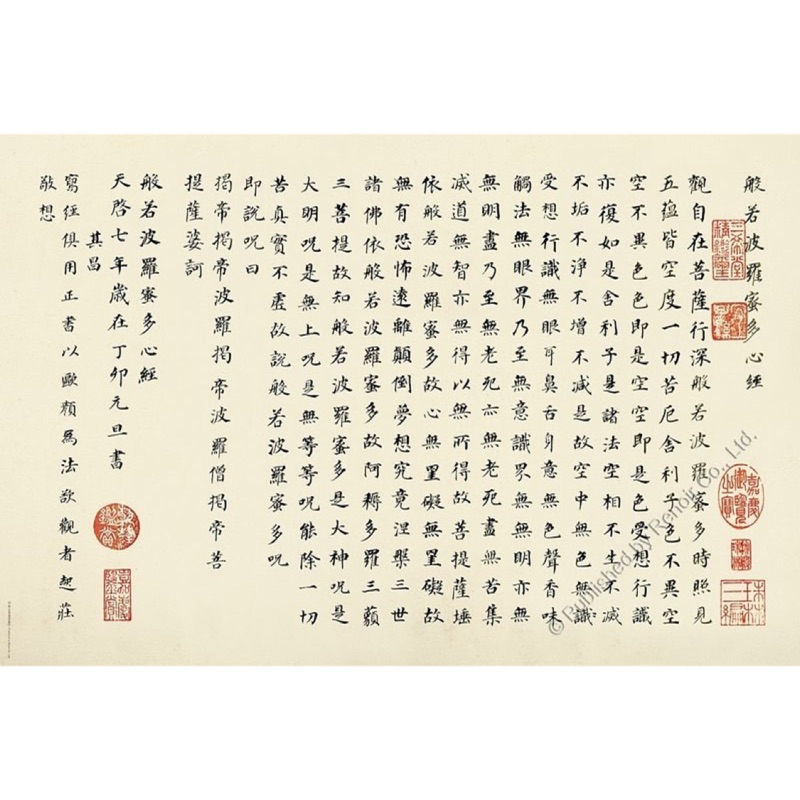 般若波羅蜜多心經
觀自在菩薩行深般若波羅蜜多時照見
五蘊皆空度一切苦厄舍利子色不異空
空不異色色即是空空即是色受想行識
亦復如是舍利子是諸法空相不生不滅
不垢不淨不增不減是故空中無色無識
受想行識無眼耳鼻舌身意無色聲香味
觸法無眼界乃至無意識界無無明亦無
無明盡乃至無老死亦無老死盡無苦集
滅道無智亦無得以無所得故菩提薩埵
依般若波羅蜜多故心無罣礙無罣礙故
無有恐怖遠離顛倒夢想究竟涅槃三世
諸佛依般若波羅蜜多故阿耨多羅三藐
三菩提故知般若波羅蜜多是大神呪是
大明呪是無上呪是無等等呪能除一切
苦真實不虛故說般若波羅蜜多呪
即說呪曰
揭帝揭帝波羅揭帝波羅僧揭帝菩
提薩婆訶
般若波羅蜜多心經
天啓七年歲在丁卯元旦書
其昌
寫經俱用正書以歐顏為法欲觀者起莊
敬想
三希堂精鑑璽
宜子孫
嘉慶御覽之寶
© Published by Renoir Co., Ltd.